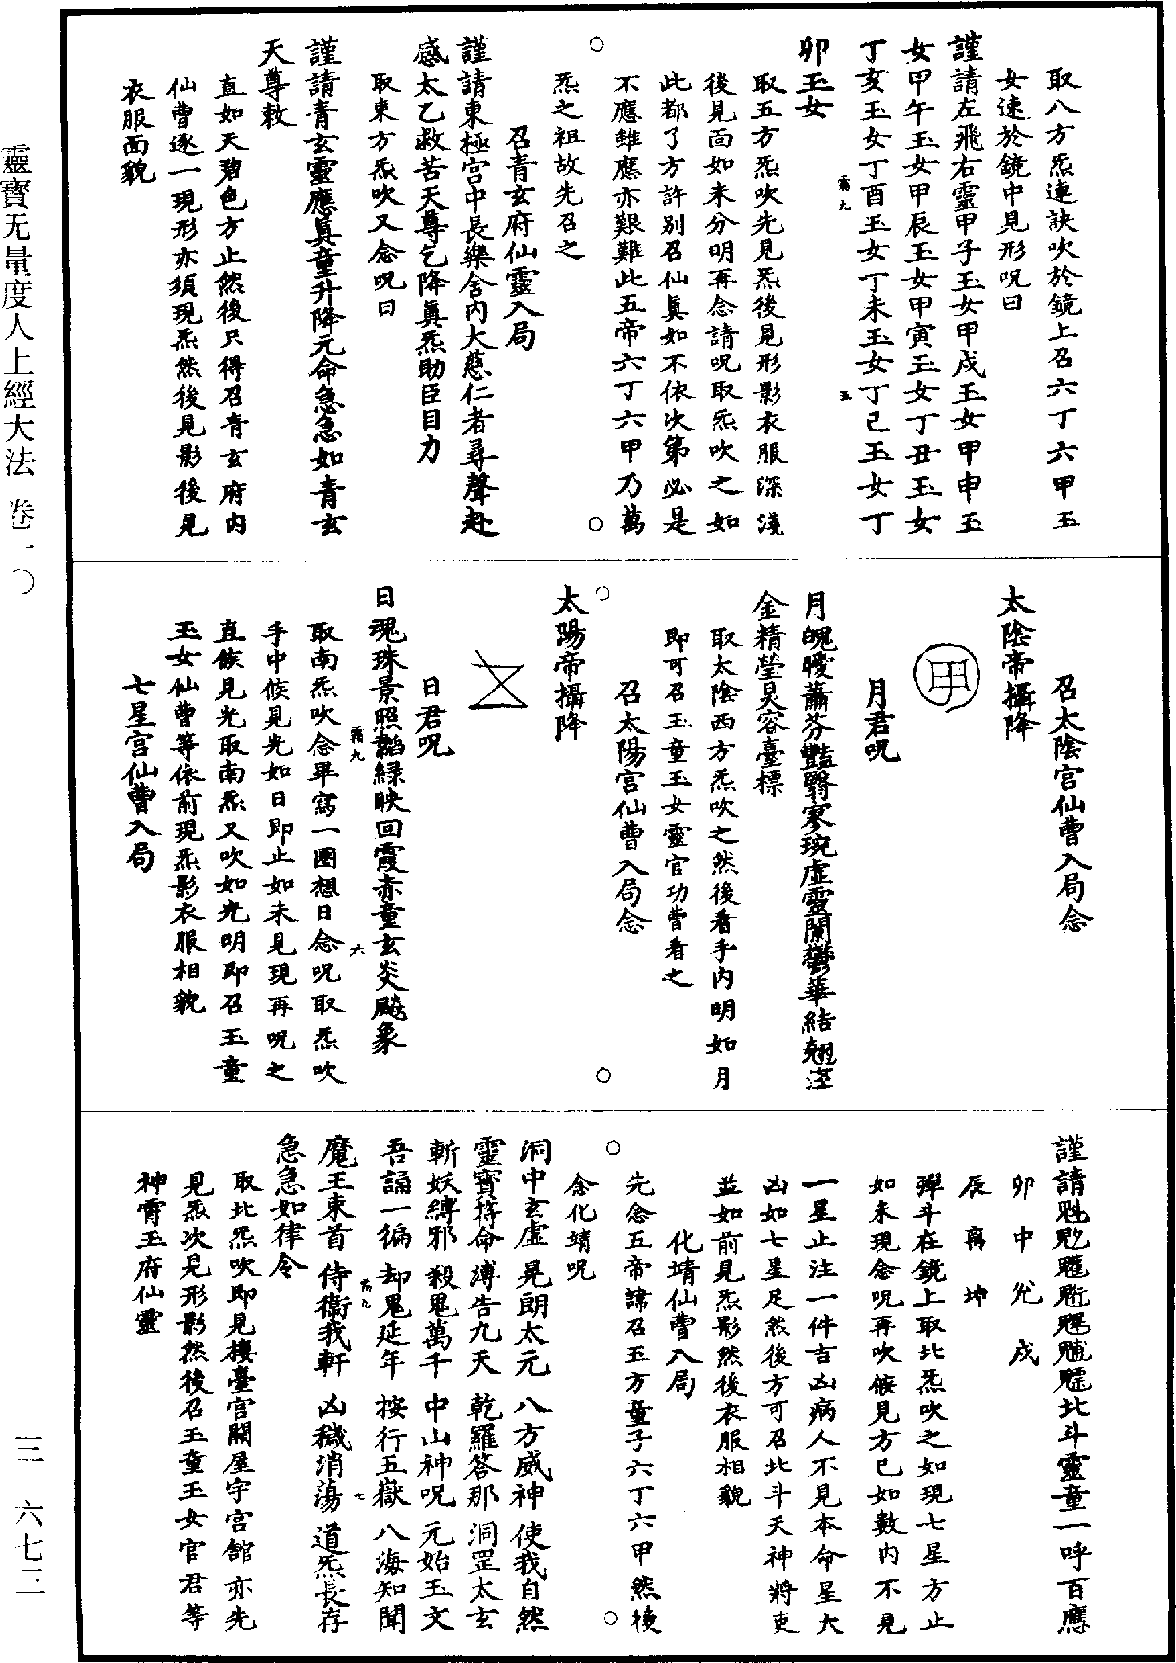 取八方炁連訣吹於鏡上召六丁六甲玉
女速於鏡中見形呪曰
謹請左飛右靈甲子玉女甲戌玉女甲申玉
女甲午玉女甲辰玉女甲寅玉女丁丑玉女
丁亥玉女丁酉玉女丁未玉女丁巳玉女丁
卯玉女
取五方炁吹先見炁後見形影衣服深淺
後見面如未分明再念請呪取炁吹之如
此都了方許別召仙眞如不依次第必是
不應雖應亦艱難此五帝六丁六甲乃萬
炁之祖故先召之
召青玄府仙靈入局
謹請東極宮中長樂舍内大慈仁者尋聲赴
感太乙救苦天尊乞降眞炁助臣目力
取東方炁吹又念呪曰
謹請青玄靈應眞童升降元命急急如青玄
天尊敕
直如天碧色方止然後只得召青玄府内
仙曹逐一現形亦須現炁然後見影後見
衣服面貌
召太陰宮仙曹入局念
太陰帝攝降
月君呪
月魄曖蕭芬豔翳寥琬虛靈蘭鬱華結翹淳
金精瑩炅容臺標
取太陰西方炁吹之然後看手内明如月
即可召玉童玉女靈官功曹看之
召太陽宮仙曹入局念
太陽帝攝降
日君呪
日魂珠景照韜綠映回霞赤童玄炎飈象
取南炁吹念畢寫一圈想日念呪取炁吹
手中候見光如日即止如未見現再呪之
直候見光取南炁又吹如光明即召玉童
玉女仙曹等依前現炁影衣服相貌
七星宮仙曹入局
謹請魁𩲃䰢魓𩵄䰨魒北斗靈童一呼百應
卯中兊戌
辰离坤
彈斗在鏡上取北炁吹之如現七星方止
如未現念呪再吹候見方已如數内不見
一星止注一件吉凶病人不見本命星大
凶如七星足然後方可召北斗天神將吏
並如前見炁影然後衣服相貌
化靖仙曹入局
先念五帝諱召五方童子六丁六甲然後
念化靖呪
洞中玄虛 晃朗太元 八方威神 使我自然
靈寶符命 溥告九天 乾羅答那 洞罡太玄
斬妖縛邪 殺鬼萬千 中山神呪 元始玉文
吾誦一徧 却鬼延年 按行五嶽 八海知聞
魔王束首 侍衞我軒 凶穢消蕩 道炁長存
急急如律令
取北炁吹即見樓臺宮闕屋宇宮館亦先
見炁次見形影然後召玉童玉女官君等
神霄玉府仙靈
靈寶无量度人上經大法 卷一〇
三 六七三